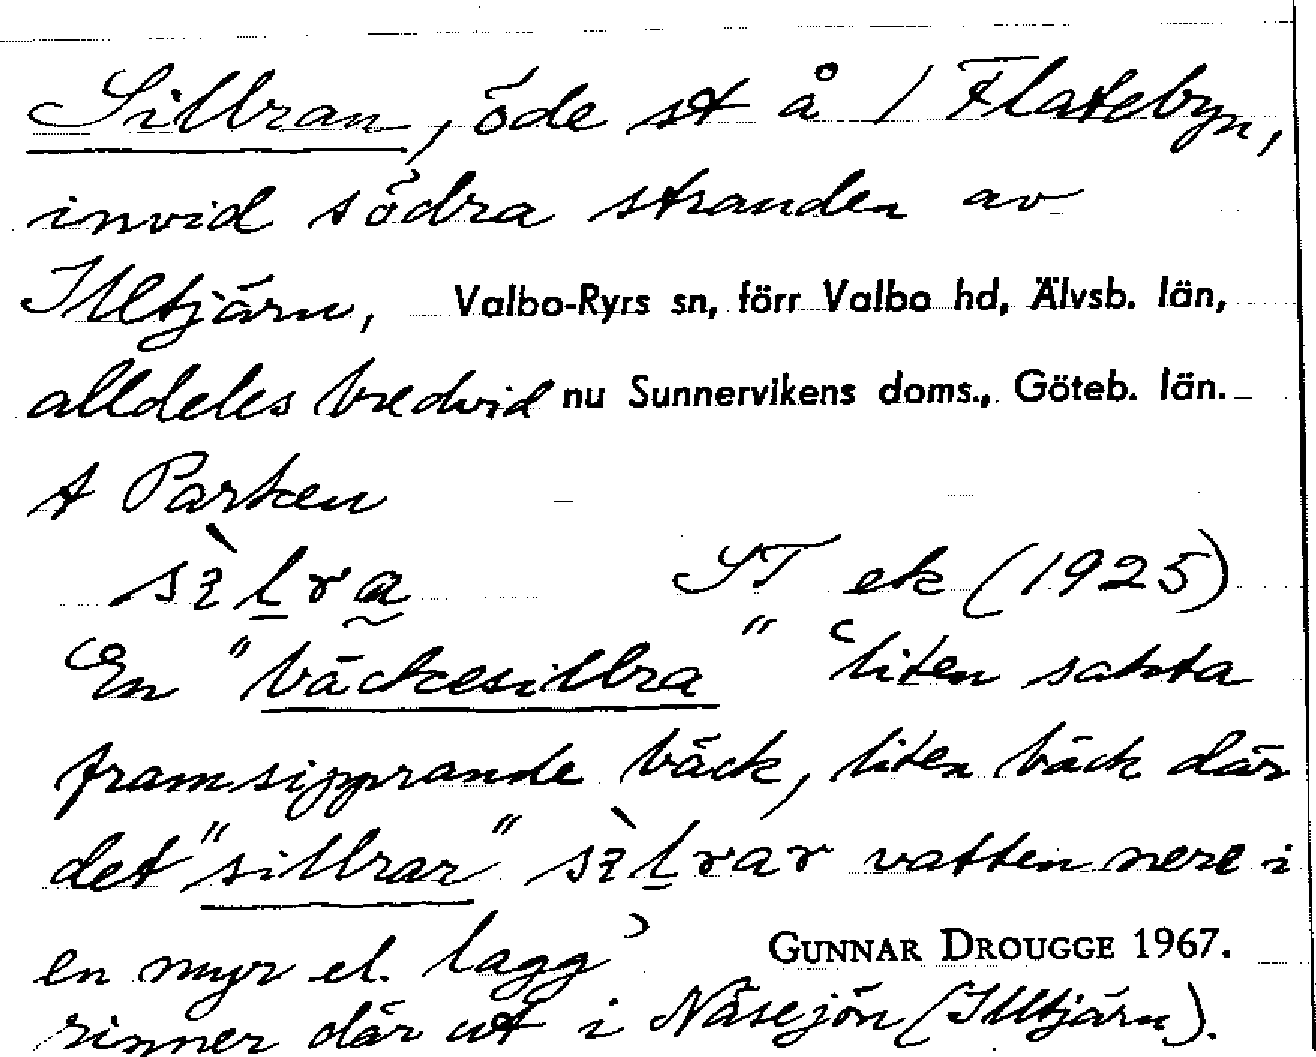 Sillran, öde st å / Flatebyn,
invid södra stranden av
Illtjärn, Valbo-Ryrs sn, förr Valbo hd, Älvsb. län,
alldeles bredvid nu Sunnervikens doms., Göteb. län.
t Parken
ST ek (1925)
En "bäckesillra" 'liten sakta
framsipprande bäck, liten bäck där
det "sillrar" vatten nere i
en myr el. lagg'
GUNNAR DROUGGE 1967.
rinner där ut i Näsejön (Illtjärn).